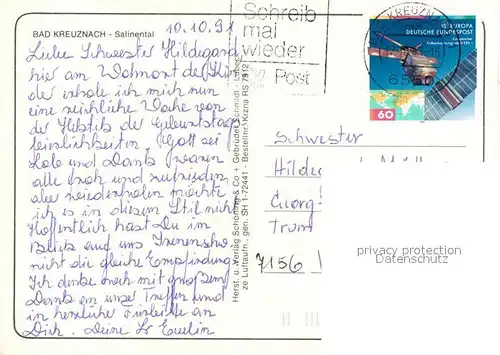 BAD KREUZNACH - Salinental
10.10.91
Liebe Schwester Hildegard
hier am Wohnort der
erhole ich mich nun
eine reichliche Woche von
der Hektik der Geburtstags
feierlichkeiten. Gott sei
Lob und Dank waren
alle froh und zufrieden
aber wiederholen möchte
ich es in diesem Stil nicht
Hoffentlich hast Du im
Blick auf uns
nicht die gleiche Empfindung
Ich denke noch mit großem
Dank an unser Treffen und
in herzlicher Fürbitte an
Dich. Deine Sr Evelin
Herst. u. Verlag Schöning & Co + Gebrüder Schmidt
Bestellnr. Krzna RS 7912
ze Luftaufn., gen. SH 1-72441
Schreib
mal
wieder
Post
KREUZNACH
6550
EUROPA
DEUTSCHE BUNDESPOST
60
Schwester
Hilde
Georg-
7156
privacy protection
Datenschutz